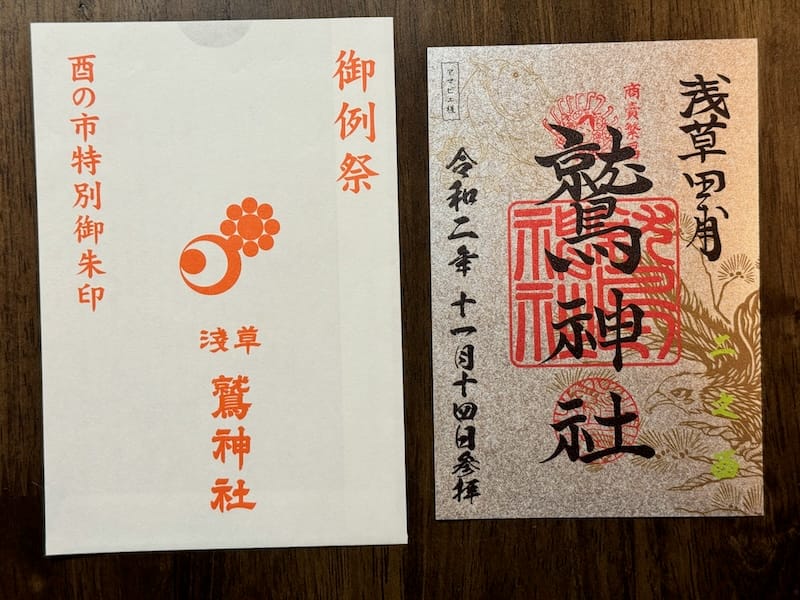 御例祭
酉の市特別御朱印
淺草
鷲神社
浅草田甫
商賣繁
鷲神社
二之酉
アマビエ様
令和二年 十一月十四日參拝